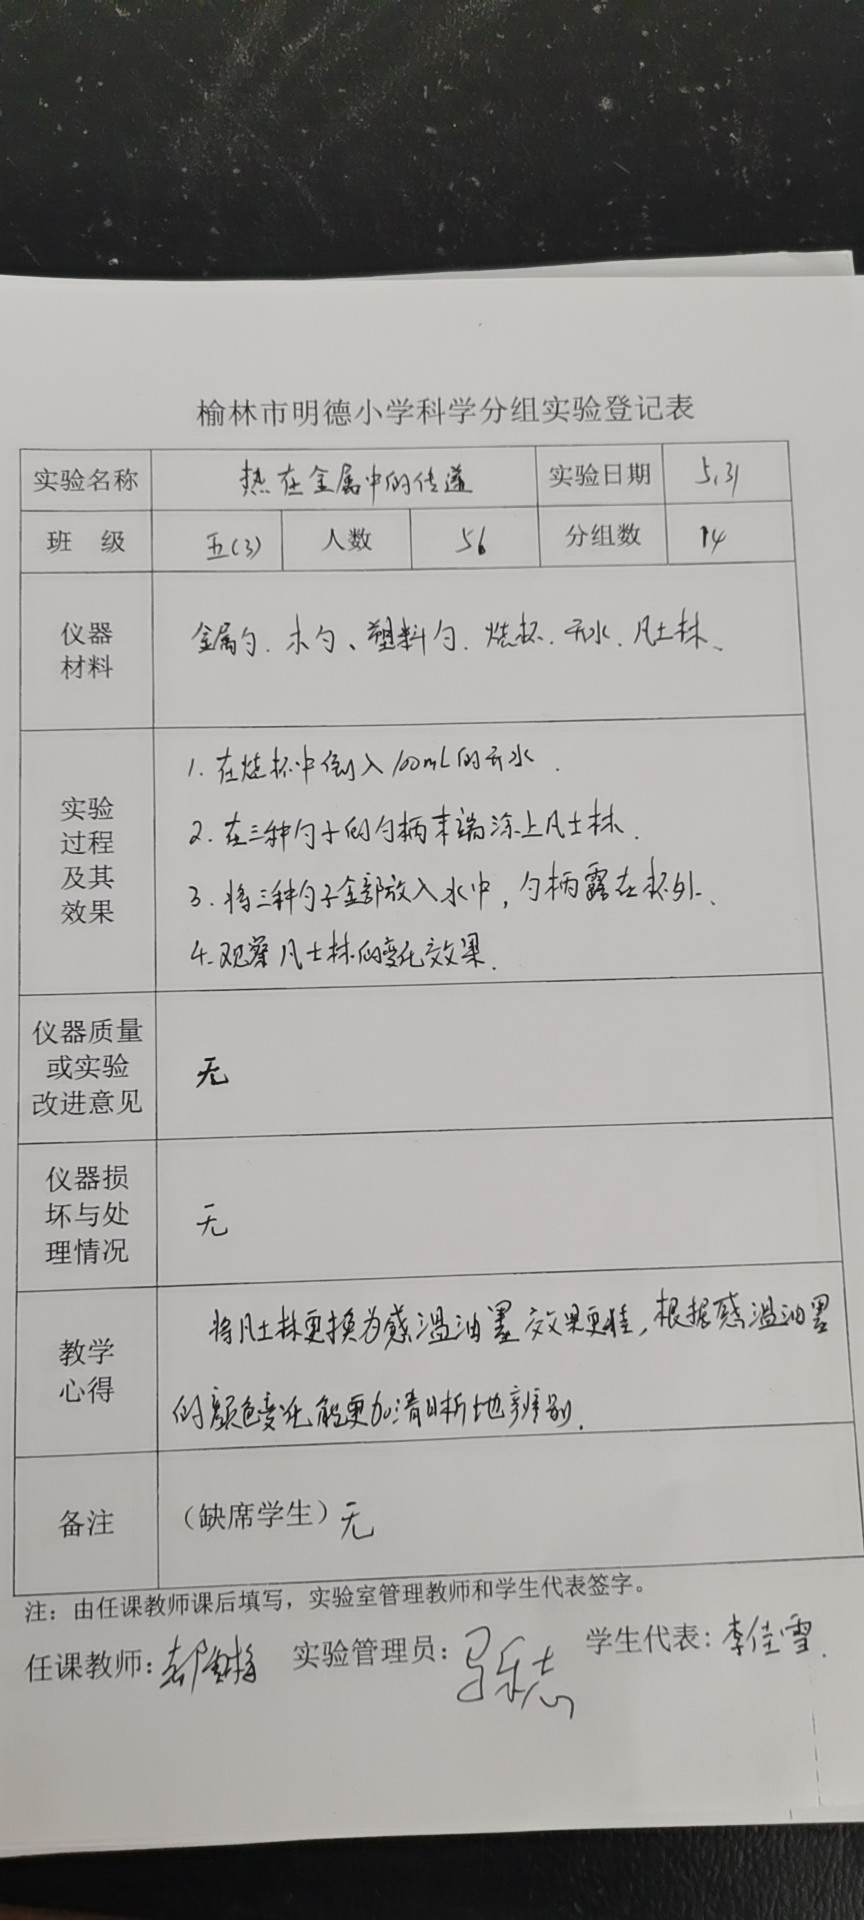 榆林市明德小学科学分组实验登记表
实验名称 热在金属中的传递 实验日期 5.31
班 级 五(3) 人数 56 分组数 14
仪器
材料
金属勺、木勺、塑料勺、烧杯、开水、凡士林、
实验
过程
及其
效果
1. 在烧杯中倒入100mL的开水.
2. 在三种勺子的勺柄末端涂上凡士林.
3. 将三种勺子全部放入水中，勺柄露在杯外、
4. 观察凡士林的变化效果.
仪器质量
或实验
改进意见
无
仪器损
坏与处
理情况
无
教学
心得
将凡士林更换为感温油墨效果更佳，根据感温油墨
的颜色变化能更加清晰地辨别.
备注 （缺席学生）无
注：由任课教师课后填写，实验室管理教师和学生代表签字。
任课教师： 实验管理员： 学生代表：李佳雪.